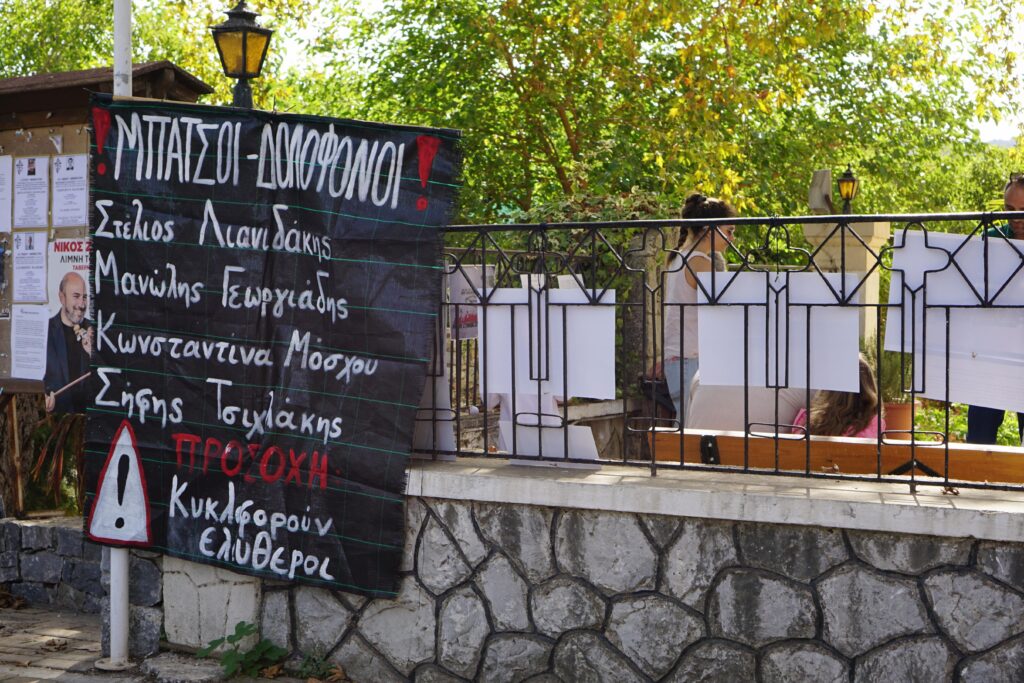 ! ΜΠΑΤΣΟΙ - ΔΟΛΟΦΟΝΟΙ !
Στέλιος Λιανιδάκης
Μανώλης Γεωργιάδης
Κωνσταντίνα Μόσχου
Σήφης Τσιχλάκης
ΠΡΟΣΟΧΗ
!
Κυκλφορούν
ελύθεροι
ΝΙΚΟΣ
ΛΙΜΝΗ
ΤΑΒΕΡ